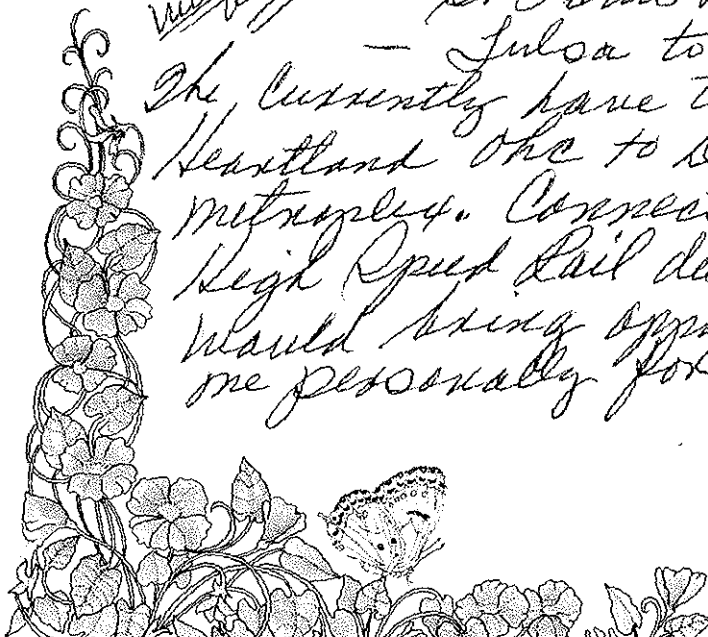 — Tulsa to
The Currently have t
Heartland OKC to D
metroplex. Connec
High Speed Rail de
would bring opp
me personally for